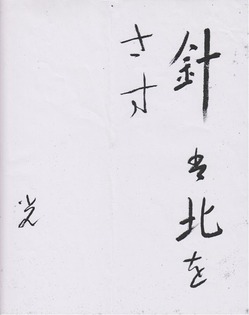 針は北を
さす
光